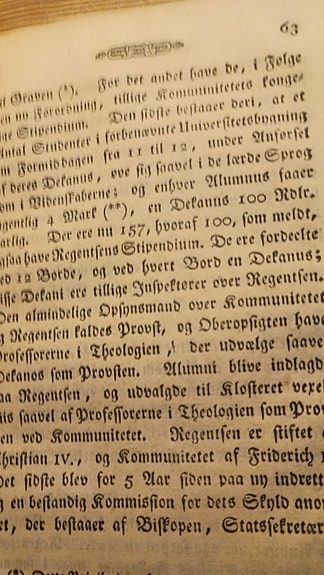 63
til Graven (*). For det andet have de, i Følge
en ny Forordning, tillige Kommunitetets konge-
lige Stipendium. Den sidste bestaaer deri, at et
Antal Studenter i forbenævnte Universitetsbygning
om Formiddagen fra 11 til 12, under Anførsel
af deres Dekanus, øve sig saavel i de lærde Sprog
som i Videnskaberne; og enhver Alumnus faaer
ugentlig 4 Mark (**), en Dekanus 100 Rdlr.
aarlig. Der ere nu 157, hvoraf 100, som meldt,
ogsaa have Regentsens Stipendium. De ere fordeelte
ved 12 Borde, og ved hvert Bord en Dekanus;
disse Dekani ere tillige Inspektorer over Regentsen.
Den almindelige Opsynsmand over Kommunitetet
og Regentsen kaldes Provst, og Oberopsigten have
Professorerne i Theologien, der udvælge saavel
Dekanos som Provsten. Alumni blive indlagde
paa Regentsen, og udvalgde til Klosteret vexel-
viis saavel af Professorerne i Theologien som Prov-
sten ved Kommunitetet. Regentsen er stiftet af
Christian IV., og Kommunitetet af Friderich
Det sidste blev for 5 Aar siden paa ny indrettet
og en bestandig Kommission for dets Skyld anord-
net, der bestaaer af Biskopen, Statssekretær